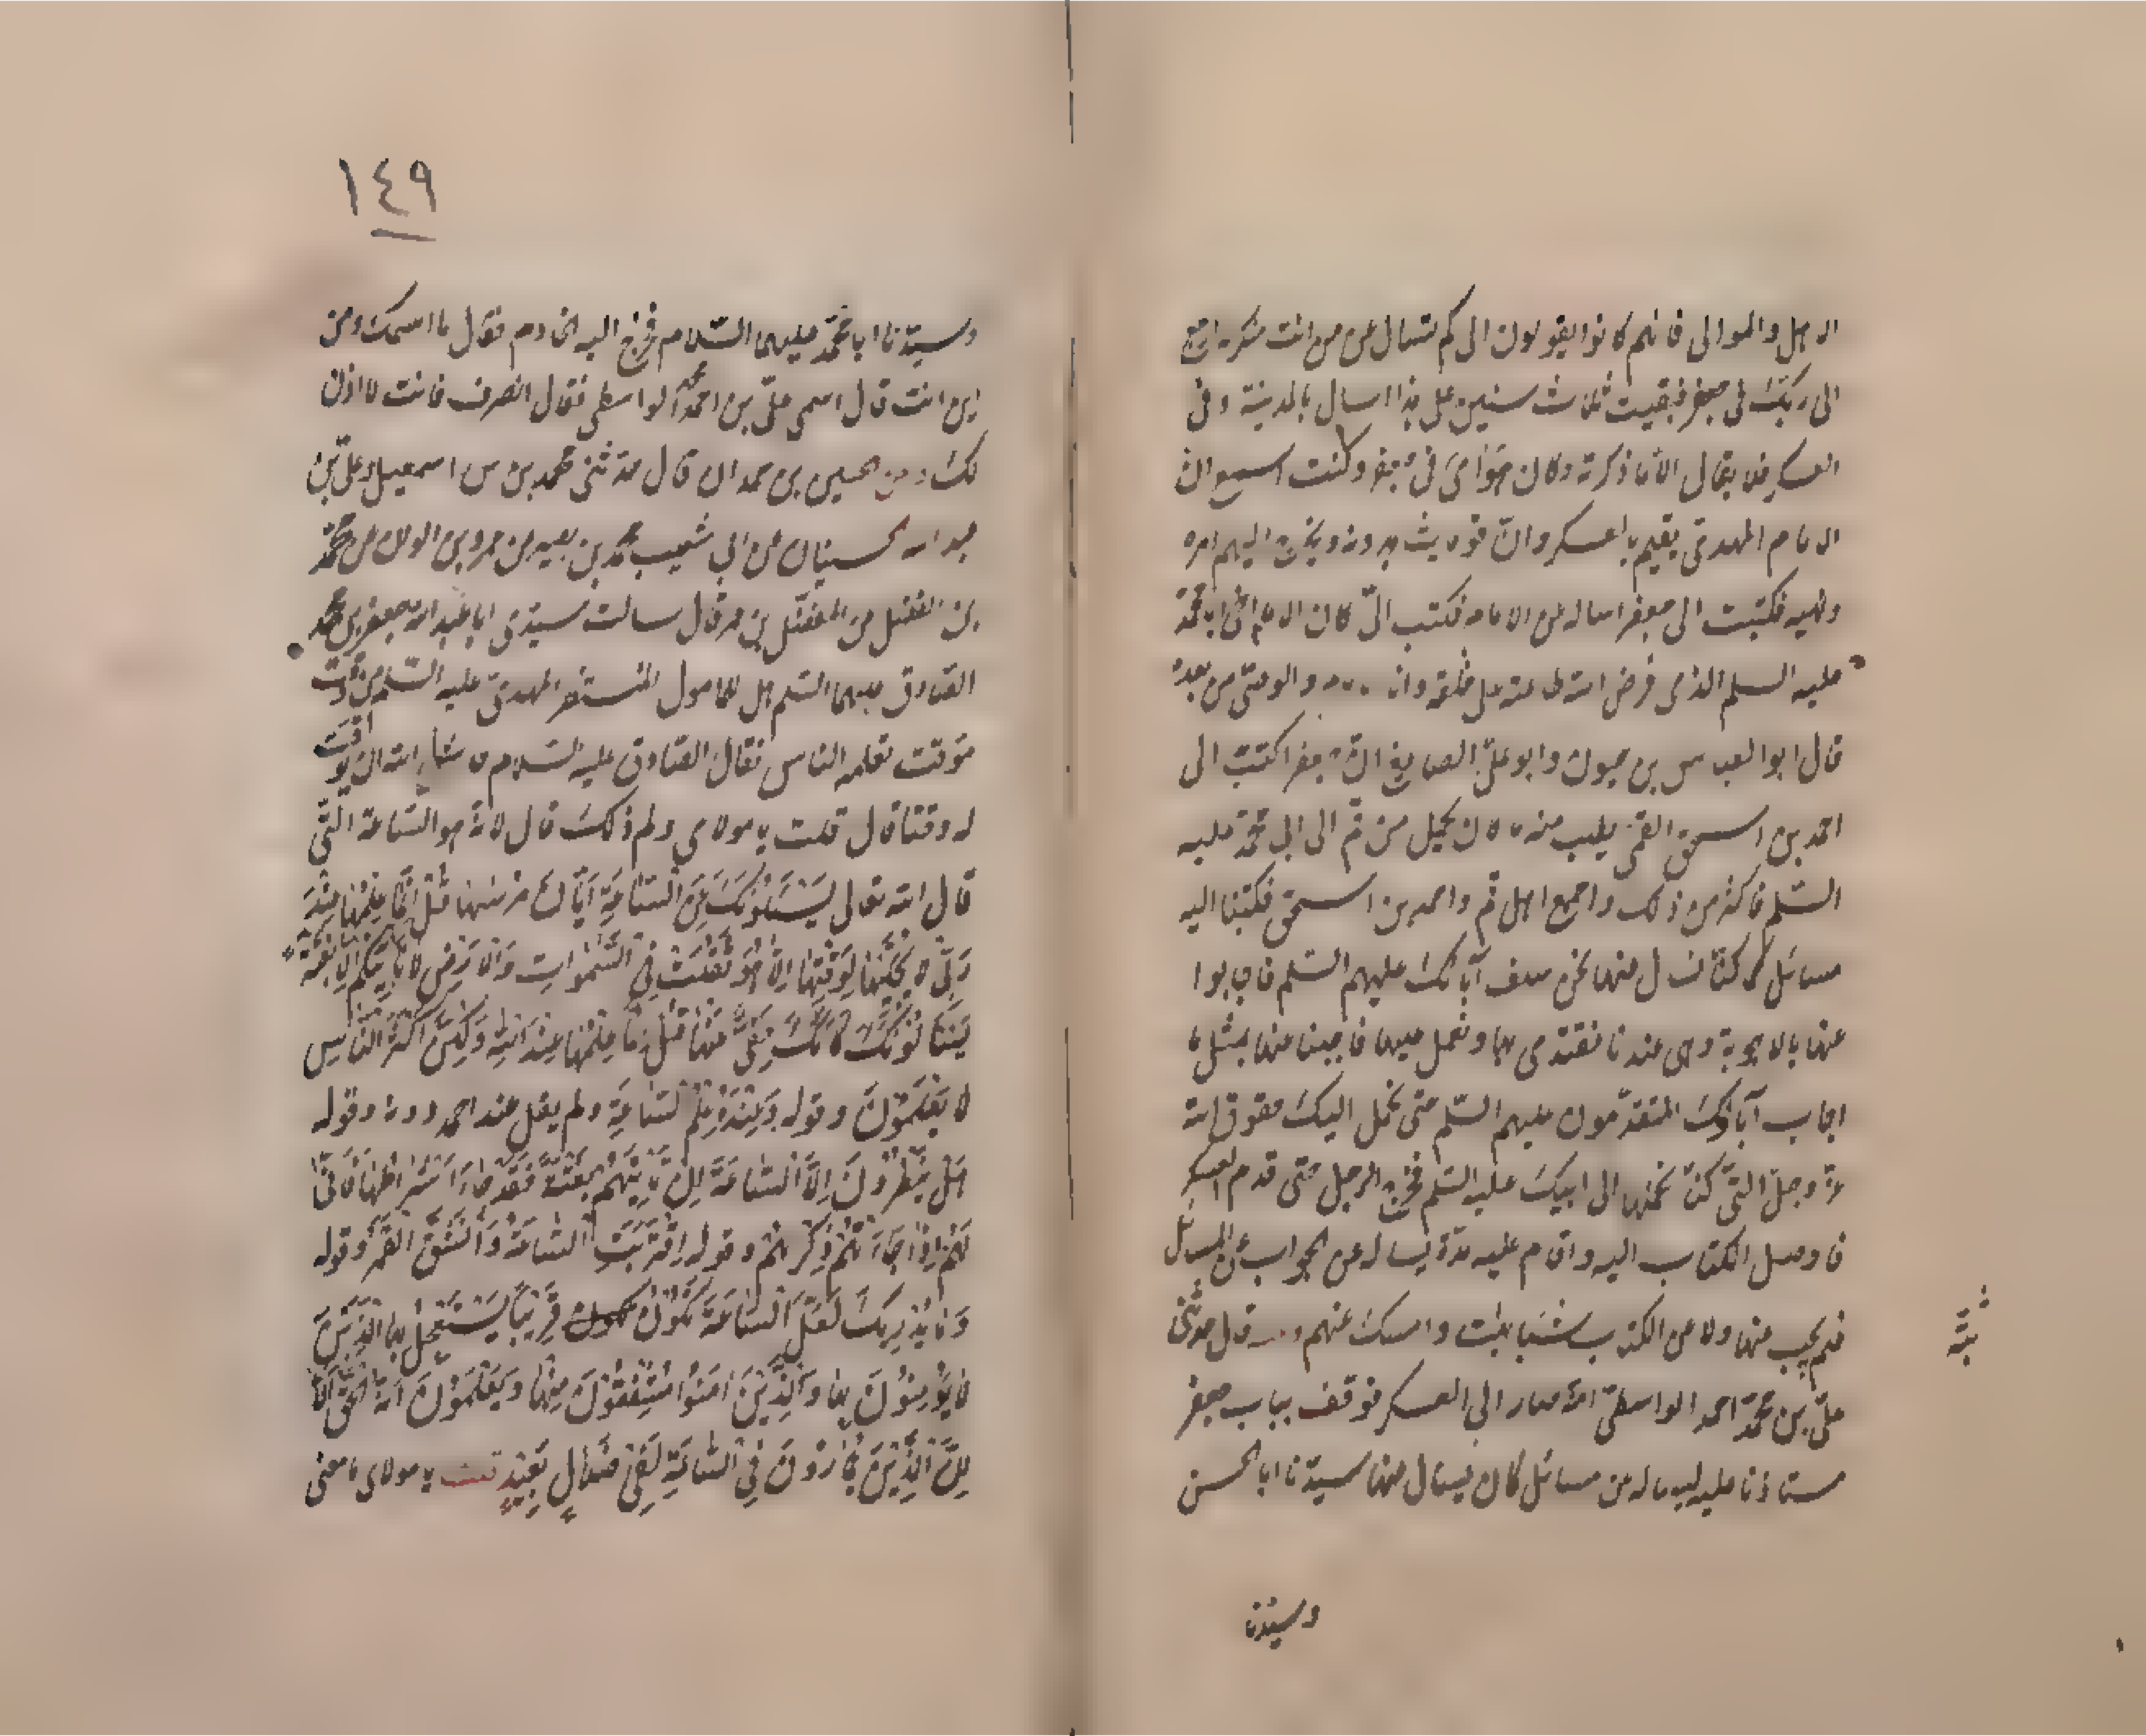 الاهل والموالى فانهم كانوا يقولون الى كم تسال عن من انت منكره ارجع
الى ربك فى جعفر فبقيت ثلاث سنين على هذا اسال بالمدينة وفى
العسكر فلا يقال الا ما ذكرته وكان هواى فى جعفر وكنت اسمع ان
الامام المهدى يقيم بالعسكر وان قوما يشاهدونه ويخرج اليهم امره
ونهيه فكتبت الى جعفر اساله عن الامام فكتب الىّ كان الامام اخى ابا محمد
عليه السلم الذى فرض الله طاعته على خلقه وانا والوصى من بعده
قال ابو العباس بن حيوان وابو على الصايغ ان جعفرا كتب الى
احمد بن اسحق القمى يطلب منه ما كان يحمل من قم الى ابى محمد عليه
السلم فاكثر من ذلك واجمع اهل قم واحمد بن اسحق فكتبنا اليه
مسائل كنا نسال منها نحن سلف آبائك عليهم السلم فاجابوا
عنها بالاجوبة وهى عندنا نقتدى بها ونعمل عليها فاجبنا عنها بمثل ما
اجاب آباؤك المتقدمون عليهم السلم حتى نحمل اليك حقوق الله
عز وجل التى كنا نحملها الى ابيك عليه السلم فخرج الرجل حتى قدم العسكر
فاوصل الكتاب اليه واقام عليه مدة يساله عن جواب عن المسائل
فلم يجب عنها ولا عن الكتاب بشىء بتة وامسك عنهم قال حدثنى
على بن محمد احمد الواسطى انه صار الى العسكر فوقف بباب جعفر
مستاذنا عليه ليساله عن مسائل كان يسال عنها سيدنا ابا الحسن
وسيدنا
بتة
١٤٩
وسيدنا ابا محمد عليهما السلام فخرج اليه الخادم فقال ما اسمك ومن
اين انت قال اسمى على بن احمد الواسطى فقال انصرف فانت لا اذن
لك وعن الحسين بن حمدان قال حدثنى محمد بن اسمعيل وعلى بن
عبد الله الحسنيان عن ابى شعيب محمد بن نصير عن عمر بن الفرات عن محمد
بن المفضل عن المفضل بن عمر قال سالت سيدى ابا عبد الله جعفر بن محمد
الصادق عليهما السلم هل للمامول المنتظر المهدى عليه السلم من وقت
موقت تعلمه الناس فقال الصادق عليه السلام ما شاء الله ان يوقت
له وقتا قال قلت يا مولاى ولم ذلك قال لانه هو الساعة التى
قال الله تعالى يَسْئَلُونَكَ عَنِ السَّاعَةِ اَيَّانَ مُرْسٰهَا قُلْ اِنَّمَا عِلْمُهَا عِنْدَ
رَبِّى لَا يُجَلِّيهَا لِوَقْتِهَا اِلَّا هُوَ ثَقُلَتْ فِى السَّمٰوَاتِ وَالْاَرْضِ لَا تَاْتِيكُمْ اِلَّا بَغْتَةً
يَسْئَلُونَكَ كَاَنَّكَ حَفِىٌّ عَنْهَا قُلْ اِنَّمَا عِلْمُهَا عِنْدَ اللّٰهِ وَلٰكِنَّ اَكْثَرَ النَّاسِ
لَا يَعْلَمُونَ وقوله وَعِنْدَهُ عِلْمُ السَّاعَةِ ولم يقل عند احد دونه وقوله
هَلْ يَنْظُرُونَ اِلَّا السَّاعَةَ اَنْ تَاْتِيَهُمْ بَغْتَةً فَقَدْ جَاءَ اَشْرَاطُهَا فَاَنّٰى
لَهُمْ اِذَا جَاءَتْهُمْ ذِكْرٰىهُمْ وقوله اِقْتَرَبَتِ السَّاعَةُ وَانْشَقَّ الْقَمَرُ وقوله
وَمَا يُدْرِيكَ لَعَلَّ السَّاعَةَ تَكُونُ قَرِيبًا يَسْتَعْجِلُ بِهَا الَّذِينَ
لَا يُؤْمِنُونَ بِهَا وَالَّذِينَ اٰمَنُوا مُشْفِقُونَ مِنْهَا وَيَعْلَمُونَ اَنَّهَا الْحَقُّ اَلَا
اِنَّ الَّذِينَ يُمَارُونَ فِى السَّاعَةِ لَفِى ضَلَالٍ بَعِيدٍ قلت يا مولاى ما معنى